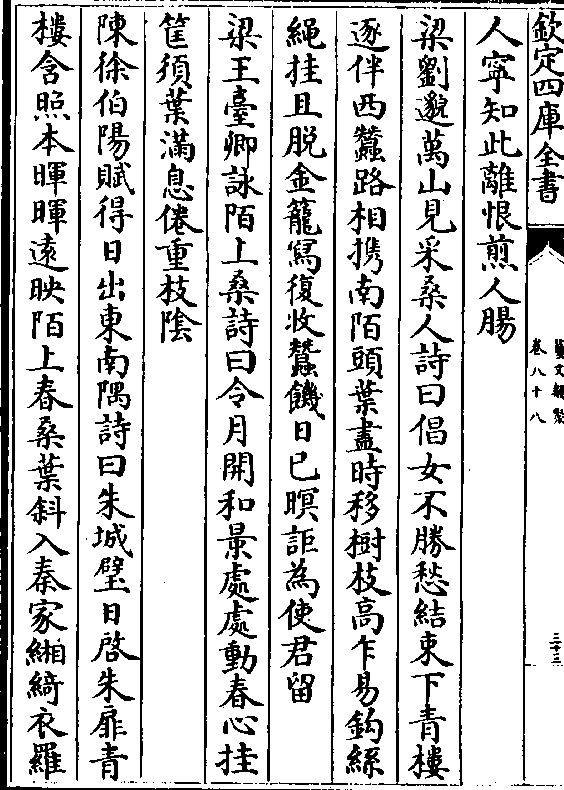 欽定四庫全書
藝文類聚
卷八十八
三十三
人寧知此離恨煎人腸
梁劉邈萬山見采桑人詩曰倡女不勝愁結束下青樓
逐伴西蠶路相攜南陌頭葉盡時移樹枝高乍易鈎絲
繩挂且脱金籠寫復收蠶饑日已暝詎為使君留
梁王臺卿詠陌上桑詩曰令月開和景處處動春心挂
筐須葉滿息倦重枝隂
陳徐伯陽賦得日出東南隅詩曰朱城璧日啓朱扉青
樓含照本暉暉遠映陌上春桑葉斜入秦家緗綺衣羅